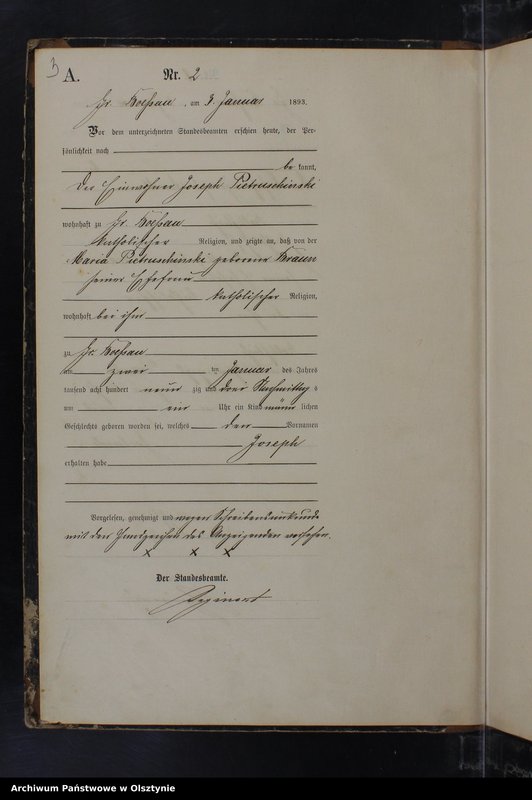 3
A. Nr. 2
Gr. Koeßau, am 3 Januar 1893.
Vor dem unterzeichneten Standesbeamten erschien heute, der Per-
sönlichkeit nach
be kannt,
der Einwohner Joseph Pietruschinski
wohnhaft zu Gr. Koeßau
katholischer Religion, und zeigte an, daß von der
Maria Pietruschinski geborene Braun
seiner Ehefrau
katholischer Religion,
wohnhaft bei ihm
zu Gr. Koeßau
am zwei ten Januar des Jahres
tausend acht hundert neun zig und drei Nachmittag s
um ein Uhr ein Kind männ lichen
Geschlechts geboren worden sei, welches den Vornamen
Joseph
erhalten habe
Vorgelesen, genehmigt und wegen Schreibensunkunde
mit dem Handzeichen des Anzeigenden versehen.
x x x
Der Standesbeamte.
Archiwum Państwowe w Olsztynie